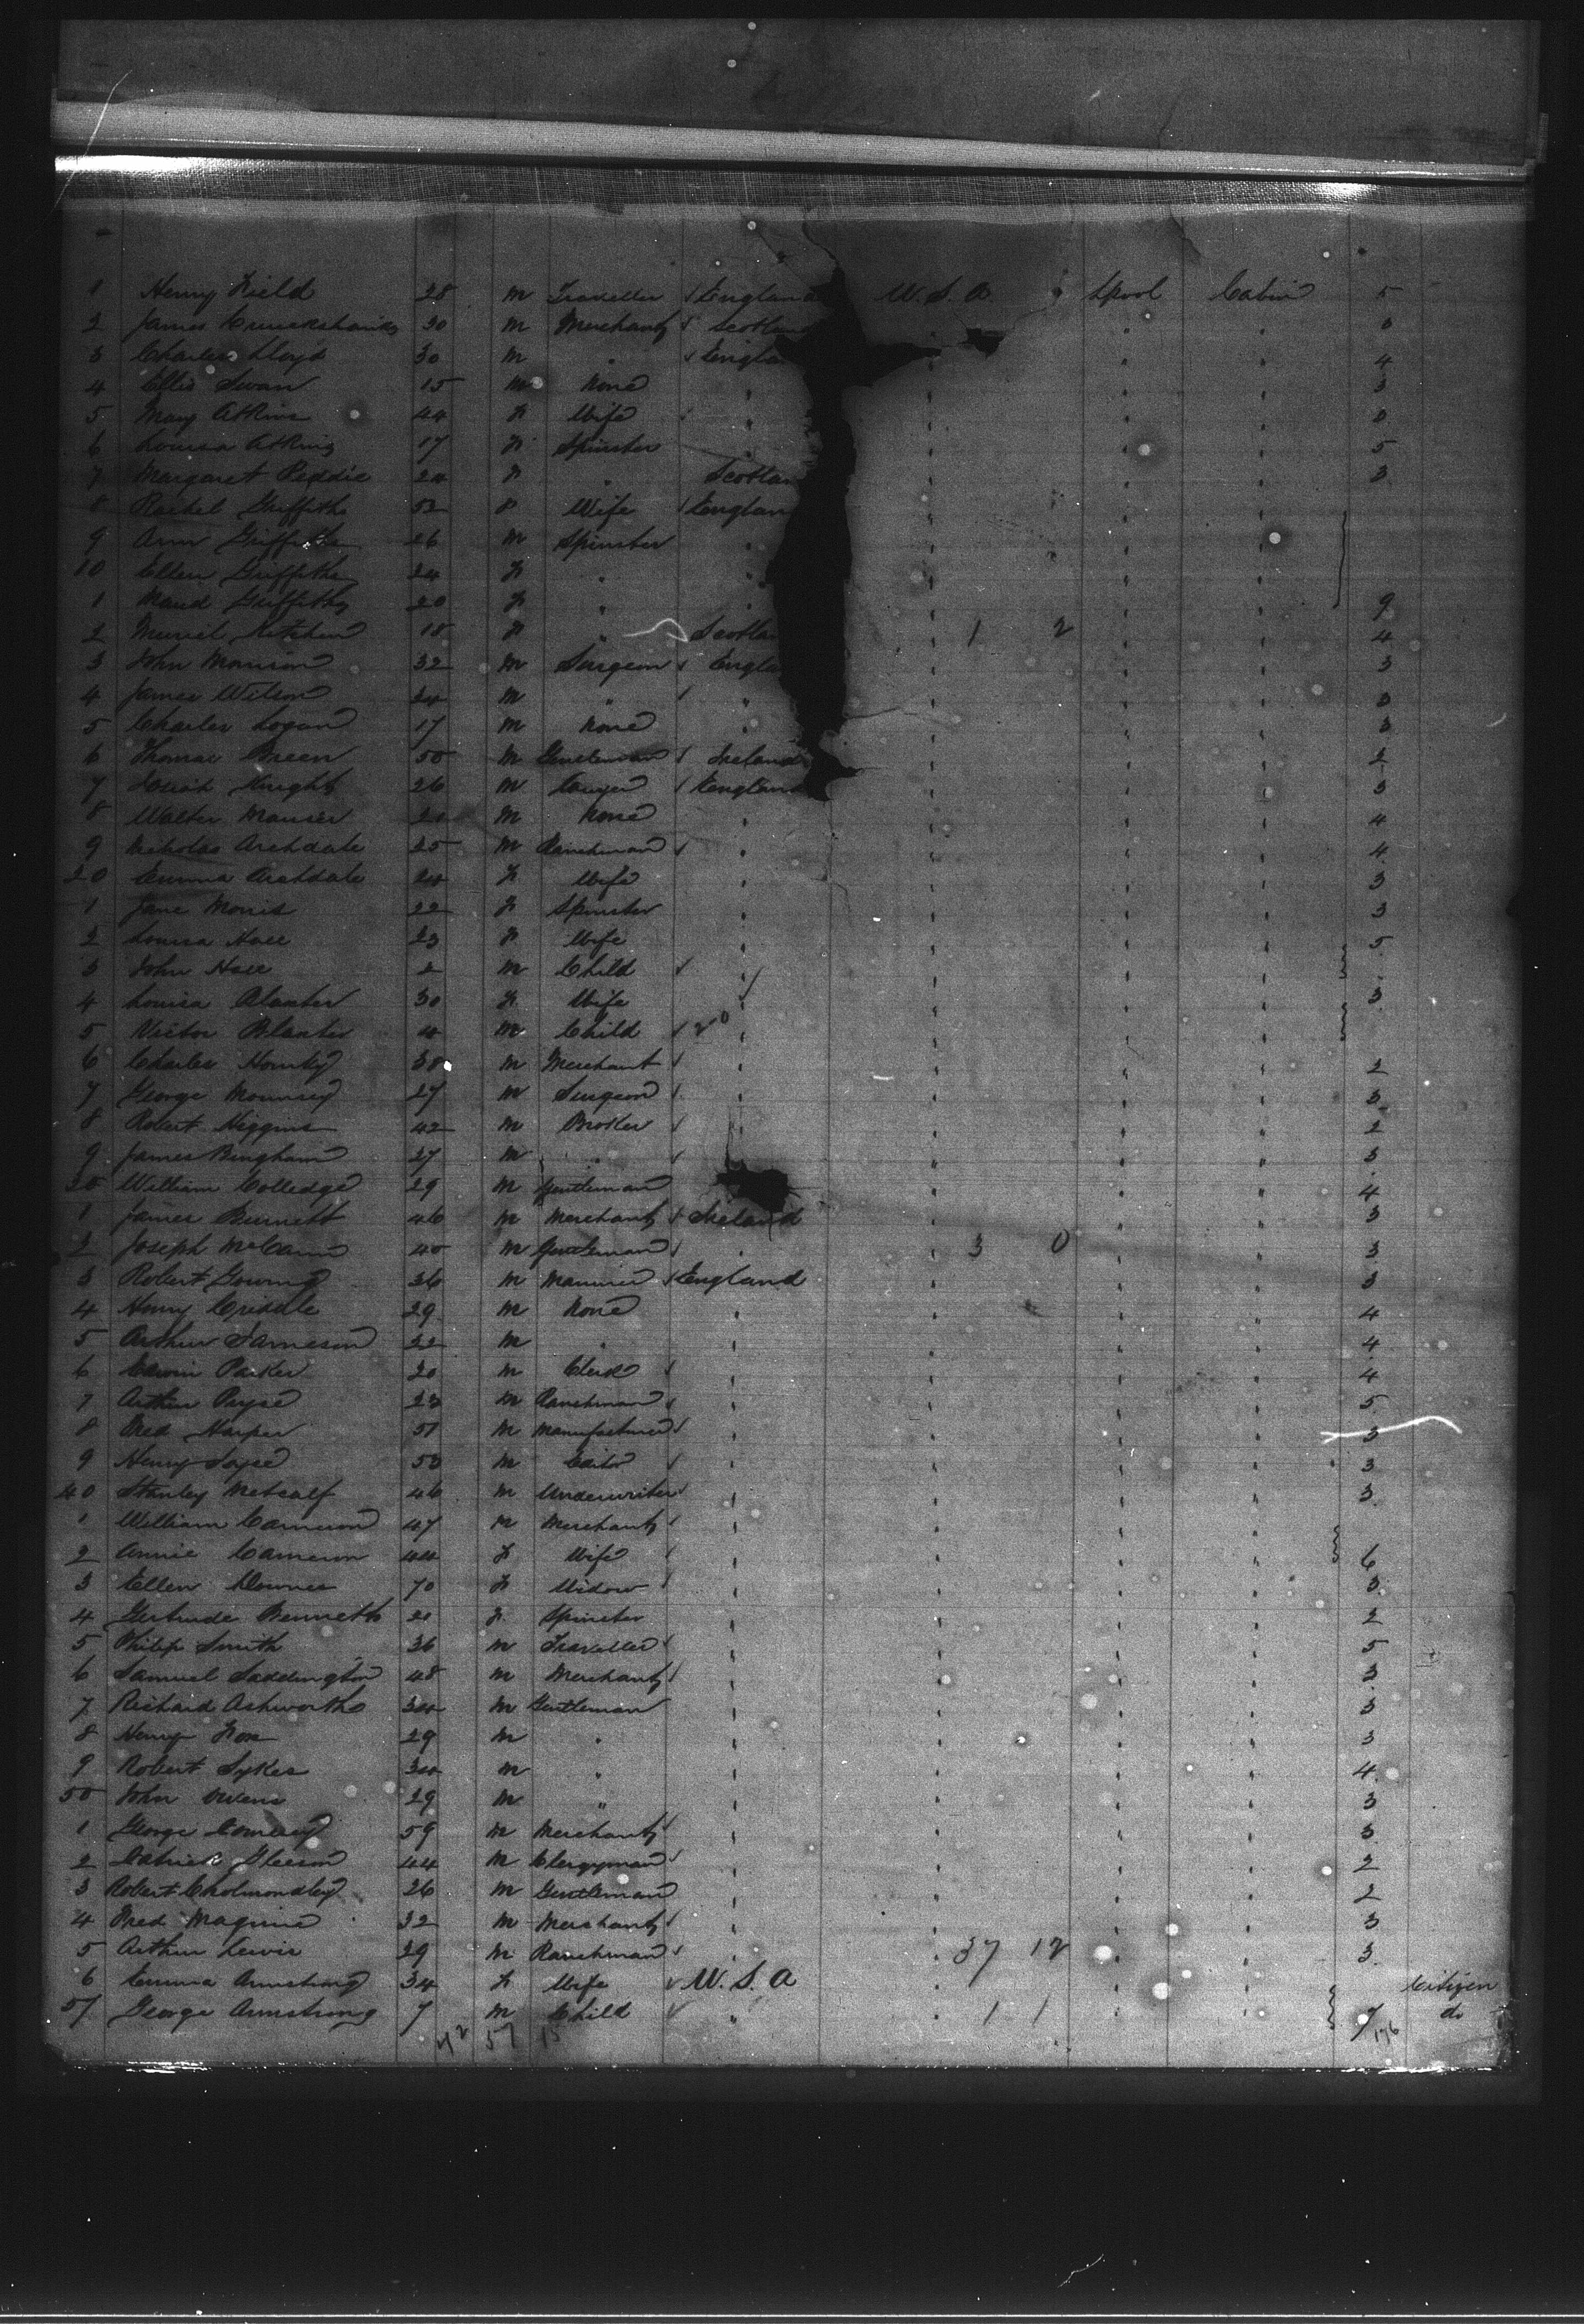 1 Henry Field 28 m Traveller √ England U. S. A Lpool Cabin 5
2 James Cruickshanks 30 m Merchant √ Scotland " " "
3 Charles Lloyd 30 m " √ England " " " 4
4 Ellis Swan 15 m None " " " " 3
5 Mary Atkins 44 F Wife " " " "
6 Louisa Atkins 17 F Spinster " " " 5
7 Margaret Peddie 24 F " Scotland " " " 3
8 Rachel Griffiths 52 F Wife √ England " " "
9 Ann Griffiths 26 m Spinster " " " "
10 Ellen Griffiths 24 F " " " " "
1 Maud Griffiths 20 F " " " " " 9
2 Muriel 18 F " Scotland 1 2 " " 4
3 John Morrison 32 m Surgeon √ England " " " 3
4 James Wilson 24 m " √ " " " "
5 Charles Logan 17 m None " " " " 3
6 Thomas Breen 50 m Gentleman √ Ireland " " " 2
7 Josiah Knight 26 m Lawyer √ England " " " 3
8 Walter 21 m None " " " " 4
9 Nicholas Archdale 25 m Ranchman √ " " " " 4
20 Emma Archdale 24 F Wife " " " " 3
1 Jane Morris 22 F Spinster " " " " 3
2 Louisa 23 F Wife " " " " 5
3 John 2 m Child √ " " " "
4 Louisa Blaxter 30 F Wife " " " " 3
5 Victor Blaxter 4 m Child √ " " " "
6 Charles 38 m Merchant √ " " " " 2
7 George Mounsey 27 m Surgeon √ " " " " 3
8 Robert Higgins 42 m Broker √ " " " " 2
9 James Bingham 27 m " √ " " " 3
30 William Colledge 29 m Gentleman " " " 4
1 James Burnett 46 m Merchant √ Ireland " " " 3
2 Joseph McCann 40 m Gentleman √ " 3 0 " " 3
3 Robert Gowing 36 m √ England " " " 3
4 Henry 29 m None " " " " 4
5 Arthur Jameson 22 m " " " " " 4
6 Edwin Parker 20 m Clerk √ " " " " 4
7 Arthur Pryse 23 m Ranchman √ " " " " 5
8 Fred Harper 51 m Manufacturer √ " " " " 3
9 Henry 50 m Editor √ " " " " 3
40 Stanley Metcalf 46 m Underwriter √ " " " " 3
1 William Cameron 47 m Merchant √ " " " "
2 Annie Cameron 44 F Wife √ " " " " 6
3 Ellen Downes 70 F Widow √ " " " " 3
4 Gertrude Bennett 21 F Spinster " " " " 2
5 Philip Smith 36 m Traveller √ " " " " 5
6 Samuel Saddington 48 m Merchant √ " " " " 3
7 Richard Ashworth 34 m Gentleman " " " " 3
8 Henry Fox 29 m " " " " " 3
9 Robert Sykes 34 m " " " " " 4
50 John Owens 29 m " " " " " 3
1 George 59 m Merchant √ " " " " 3
2 Patrick Gleeson 44 m Clergyman √ " " " " 2
3 Robert Cholmondley 26 m Gentleman " " " " 2
4 Fred Maguire 32 m Merchant √ " " " " 3
5 Arthur Lewis 29 m Ranchman √ " 37 12 " " 3
6 Emma Armstrong 34 F Wife √ U. S. A " " " Citizen
57 George Armstrong 7 m Child √ " 1 1 " " 7 do
42 57 15 176